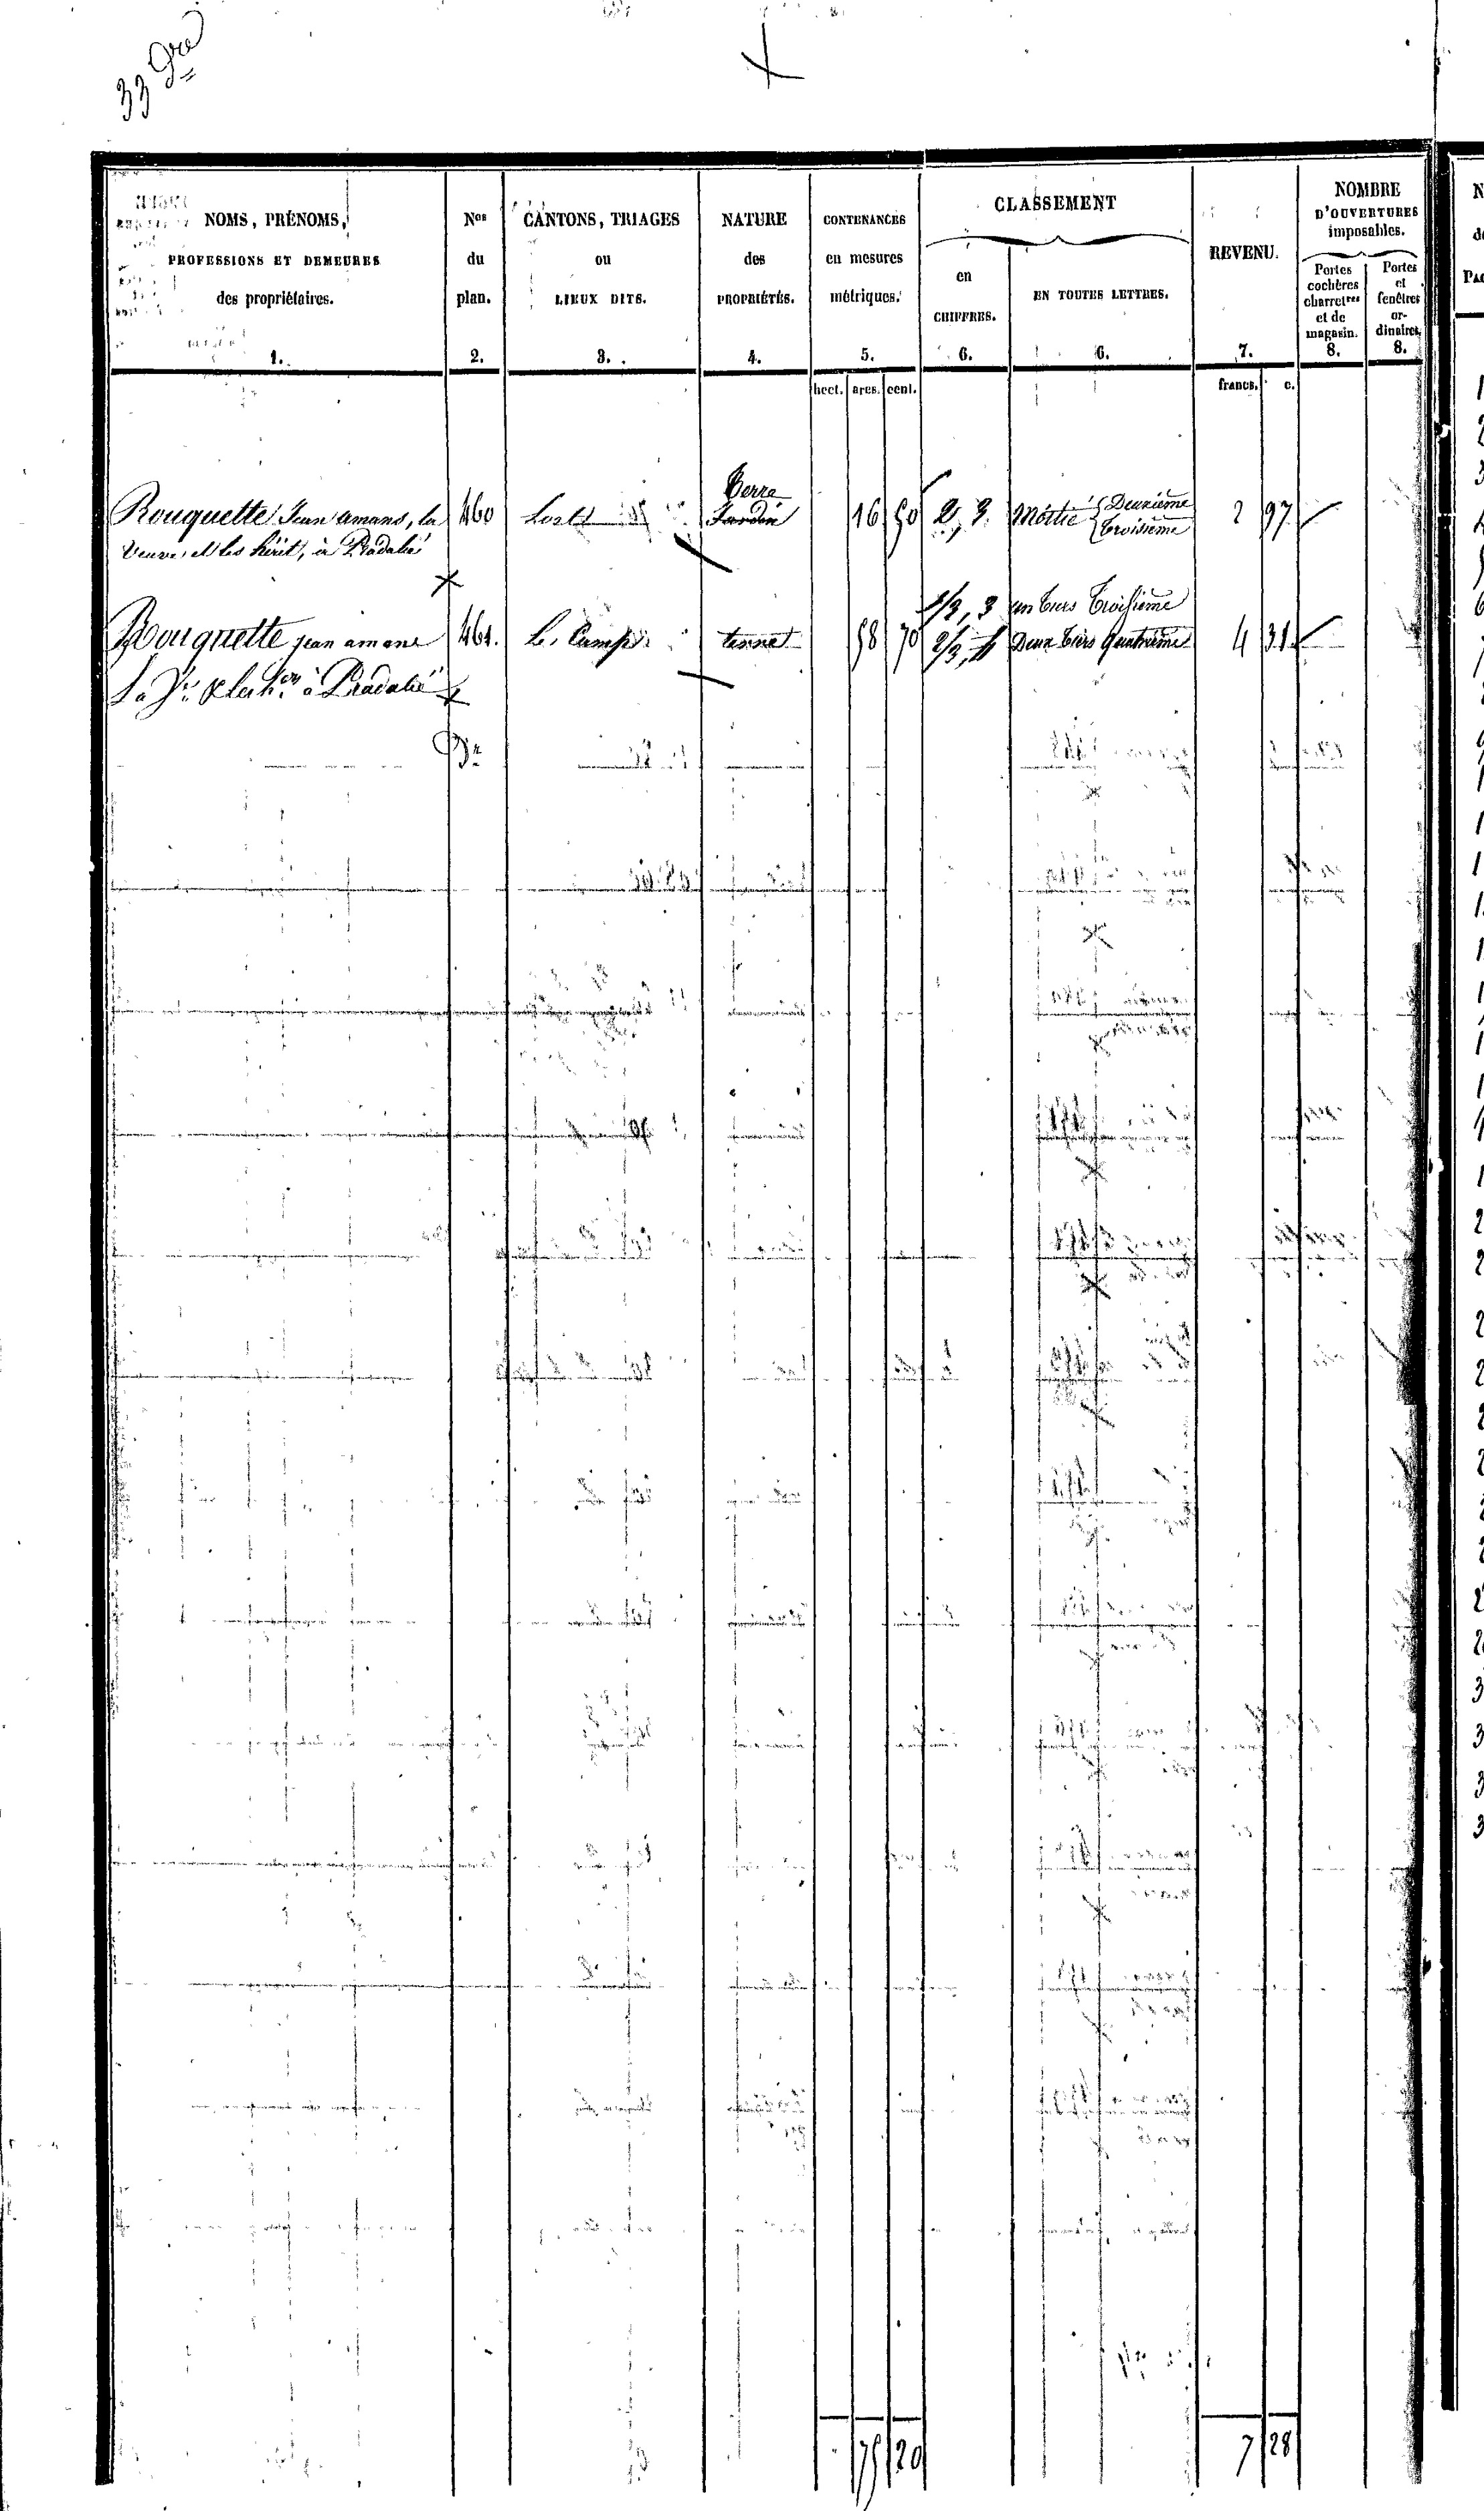 NOMS, PRÉNOMS,
PROFESSIONS ET DEMEURES
des propriétaires.
1.
Nos
du
plan.
2.
CANTONS, TRIAGES
ou
LIEUX DITS.
3.
NATURE
des
PROPRIÉTÉS.
4.
CONTENANCES
en mesures
métriques.
5.
hect. ares. cent.
CLASSEMENT
en
CHIFFRES.
6.
EN TOUTES LETTRES.
6.
REVENU.
7.
francs. c.
NOMBRE
D'OUVERTURES
imposables.
Portes
cochères
charretres
et de
magasin.
8.
Portes
et
fenêtres
or-
dinaires.
8.
Terre
Rouquette Jean amans, la 460 Jardin 16 50 2, 3. Moitié Deuxième 2 97
Troisième
Veuve, et les hérit, à Pradalié
1/3, 3 un tiers Troisième
Rouquette jean amans 461. L. Camp terre 58 70 2/3, 4 Deux tiers Quatrième 4 31
à Pradalié
75 20 7 28